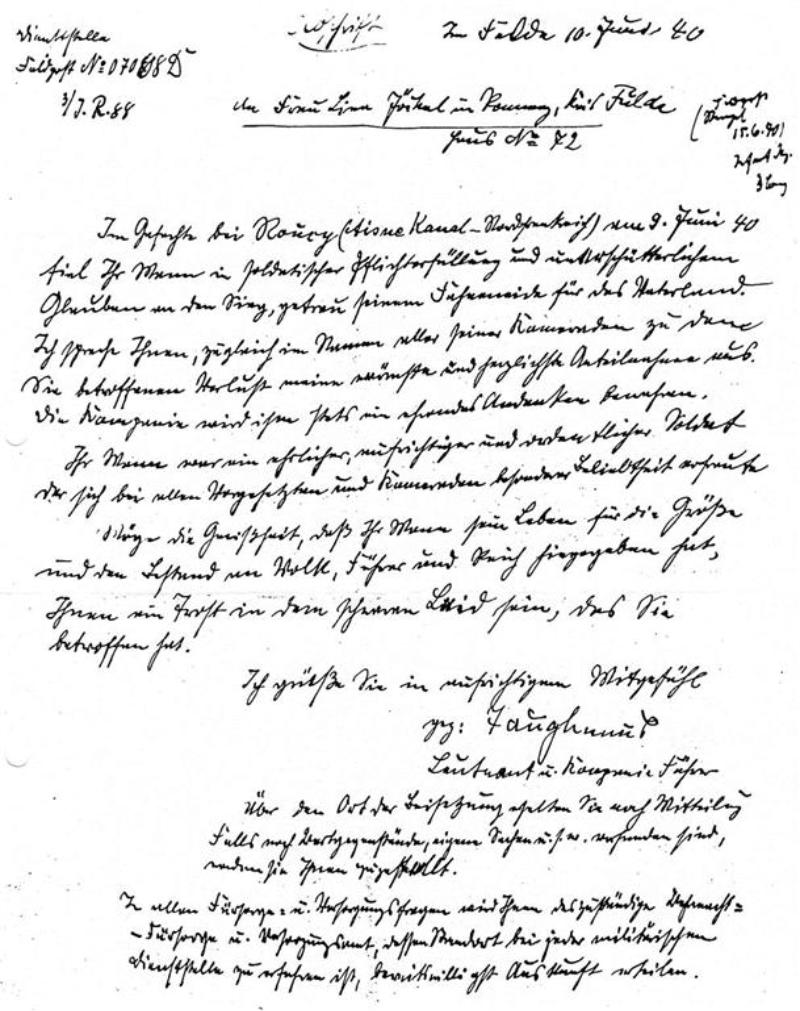 Dienststelle
Feldpost No 07068 D
3/J.R.88
Abschrift
Im Felde 10. Juni 40
An Frau Lina Jöckel in Kreis Fulda
Haus No 72
15.6.40
Im Gefechte bei Roucy (Aisne Kanal – Nordfrankreich) am 9. Juni 40
fiel Ihr Mann in soldatischer Pflichterfüllung und unerschütterlichem
Glauben an den Sieg, getreu seinem Fahneneide für das Vaterland.
Ich spreche Ihnen, zugleich im Namen aller seiner Kameraden zu dem
Sie betroffenen Verlust meine wärmste und herzlichste Anteilnahme aus.
Die Kompanie wird ihm stets ein ehrendes Andenken bewahren.
Ihr Mann war ein ehrlicher, aufrichtiger und ordentlicher Soldat
der sich bei allen Vorgesetzten und Kameraden besonderer Beliebtheit erfreute
Möge die Gewißheit, daß Ihr Mann sein Leben für die Größe
und den Bestand von Volk, Führer und Reich hingegeben hat,
Ihnen ein Trost in dem schweren Leid sein, das Sie
betroffen hat.
Ich grüße Sie in aufrichtigem Mitgefühl
gez:
Leutnant u. Kompanie Führer
Über den Ort der Beisetzung erhalten Sie noch Mitteilung
Falls noch Wertgegenstände, eigene Sachen u.s.w. vorhanden sind,
werden sie Ihnen zugestellt.
In allen Fürsorge- u. Versorgungsfragen wird Ihnen das zuständige Wehrmacht=
-Fürsorge u. Versorgungsamt, dessen Standort bei jeder militärischen
Dienststelle zu erfahren ist, bereitwilligst Auskunft erteilen.